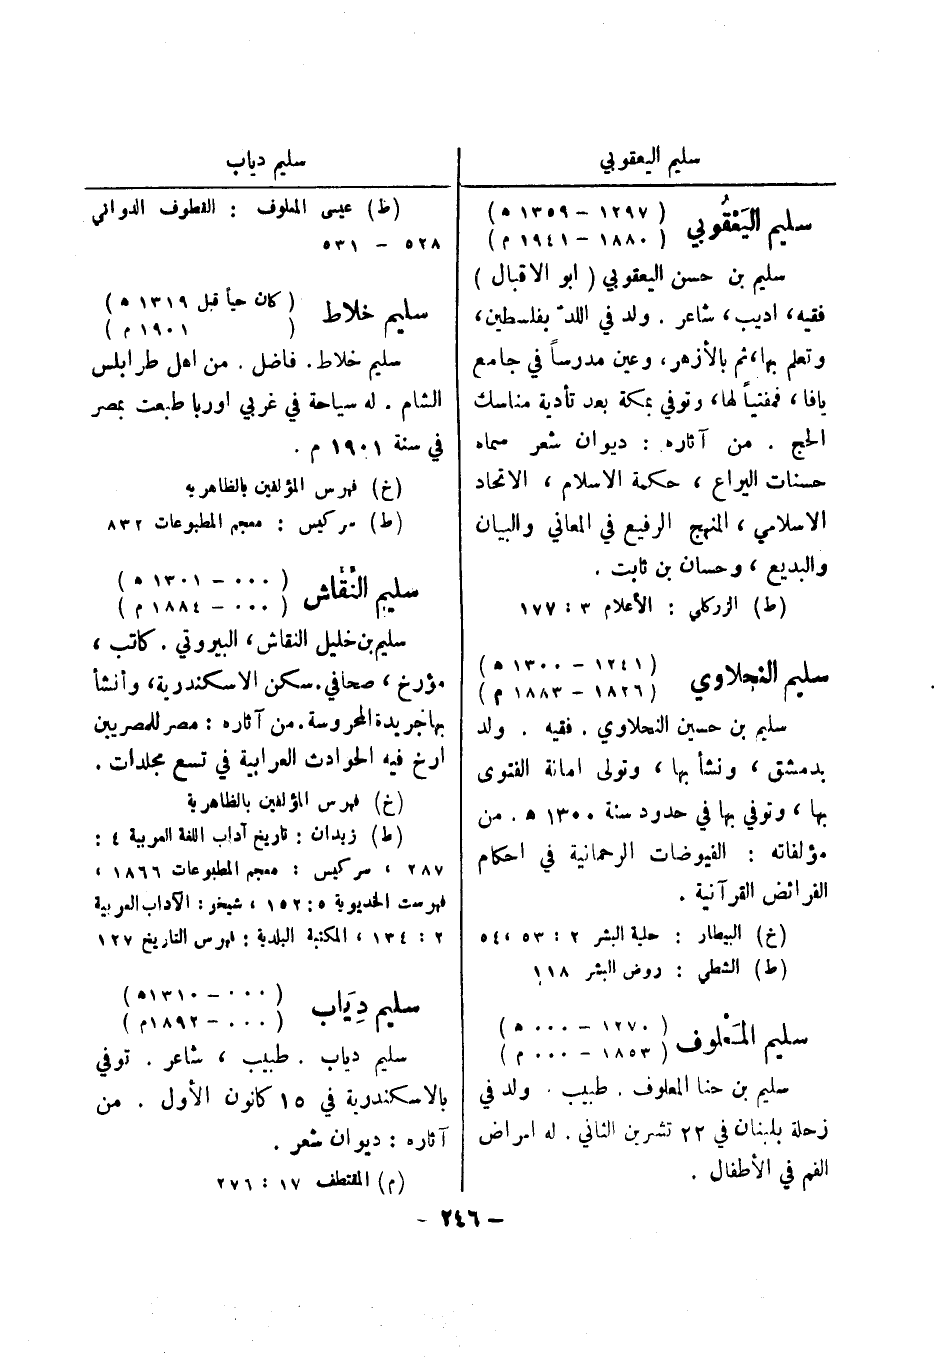 سليم اليعقوبي
سليم اليَعْقُوبي ( ١٢٩٧ – ١٣٥٩ ه )
( ١٨٨٠ – ١٩٤١ م )
سليم بن حسن اليعقوبي ( ابو الاقبال )
فقيه، اديب، شاعر . ولد في اللد بفلسطين،
وتعلم بها، ثم بالأزهر، وعين مدرساً في جامع
يافا، فمفتياً لها، وتوفي بمكة بعد تأدية مناسك
الحج . من آثاره : ديوان شعر سماه
حسنات اليراع ، حكمة الاسلام ، الاتحاد
الاسلامي ، المنهج الرفيع في المعاني والبيان
والبديع ، وحسان بن ثابت .
(ط) الزركلي : الأعلام ٣ : ١٧٧
سليم النحلاوي ( ١٢٤١ – ١٣٠٠ ه )
( ١٨٢٦ – ١٨٨٣ م )
سليم بن حسين النحلاوي . فقيه . ولد
بدمشق ، ونشأ بها ، وتولى امانة الفتوى
بها ، وتوفي بها في حدود سنة ١٣٠٠ ه . من
مؤلفاته : الفيوضات الرحمانية في احكام
الفرائض القرآنية .
(خ) البيطار : حلية البشر ٢ : ٥٣ ، ٥٤
(ط) الشطي : روض البشر ١١٨
سليم المَعْلوف ( ١٢٧٠ – ٠٠٠ ه )
( ١٨٥٣ – ٠٠٠ م )
سليم بن حنا المعلوف . طبيب . ولد في
زحلة بلبنان في ٢٢ تشرين الثاني . له امراض
الفم في الأطفال .
سليم دياب
(ط) عيسى المعلوف : القطوف الدواني
٥٢٨ – ٥٣١
سليم خلاط ( كان حياً قبل ١٣١٩ ه )
( ١٩٠١ م )
سليم خلاط . فاضل . من اهل طرابلس
الشام . له سياحة في غربي اوربا طبعت بمصر
في سنة ١٩٠١ م .
(خ) فهرس المؤلفين بالظاهرية
(ط) سركيس : معجم المطبوعات ٨٣٢
سليم النَّقاش ( ٠٠٠ – ١٣٠١ ه )
( ٠٠٠ – ١٨٨٤ م )
سليم بن خليل النقاش، البيروتي . كاتب ،
مؤرخ ، صحافي . سكن الاسكندرية، وأنشأ
بها جريدة المحروسة . من آثاره : مصر للمصريين
ارخ فيه الحوادث العرابية في تسع مجلدات .
(خ) فهرس المؤلفين بالظاهرية
(ط) زيدان : تاريخ آداب اللغة العربية ٤ :
٢٨٧ ، سركيس : معجم المطبوعات ١٨٦٦ ،
فهرست الخديوية ٥ : ١٥٢ ، شيخو : الآداب العربية
٢ : ١٣٤ ، المكتبة البلدية : فهرس التاريخ ١٢٧
سليم دِيَاب ( ٠٠٠ – ١٣١٠ ه )
( ٠٠٠ – ١٨٩٢ م )
سليم دياب . طبيب ، شاعر . توفي
بالاسكندرية في ١٥ كانون الأول . من
آثاره : ديوان شعر .
(م) المقتطف ١٧ : ٢٧٦
– ٢٤٦ –